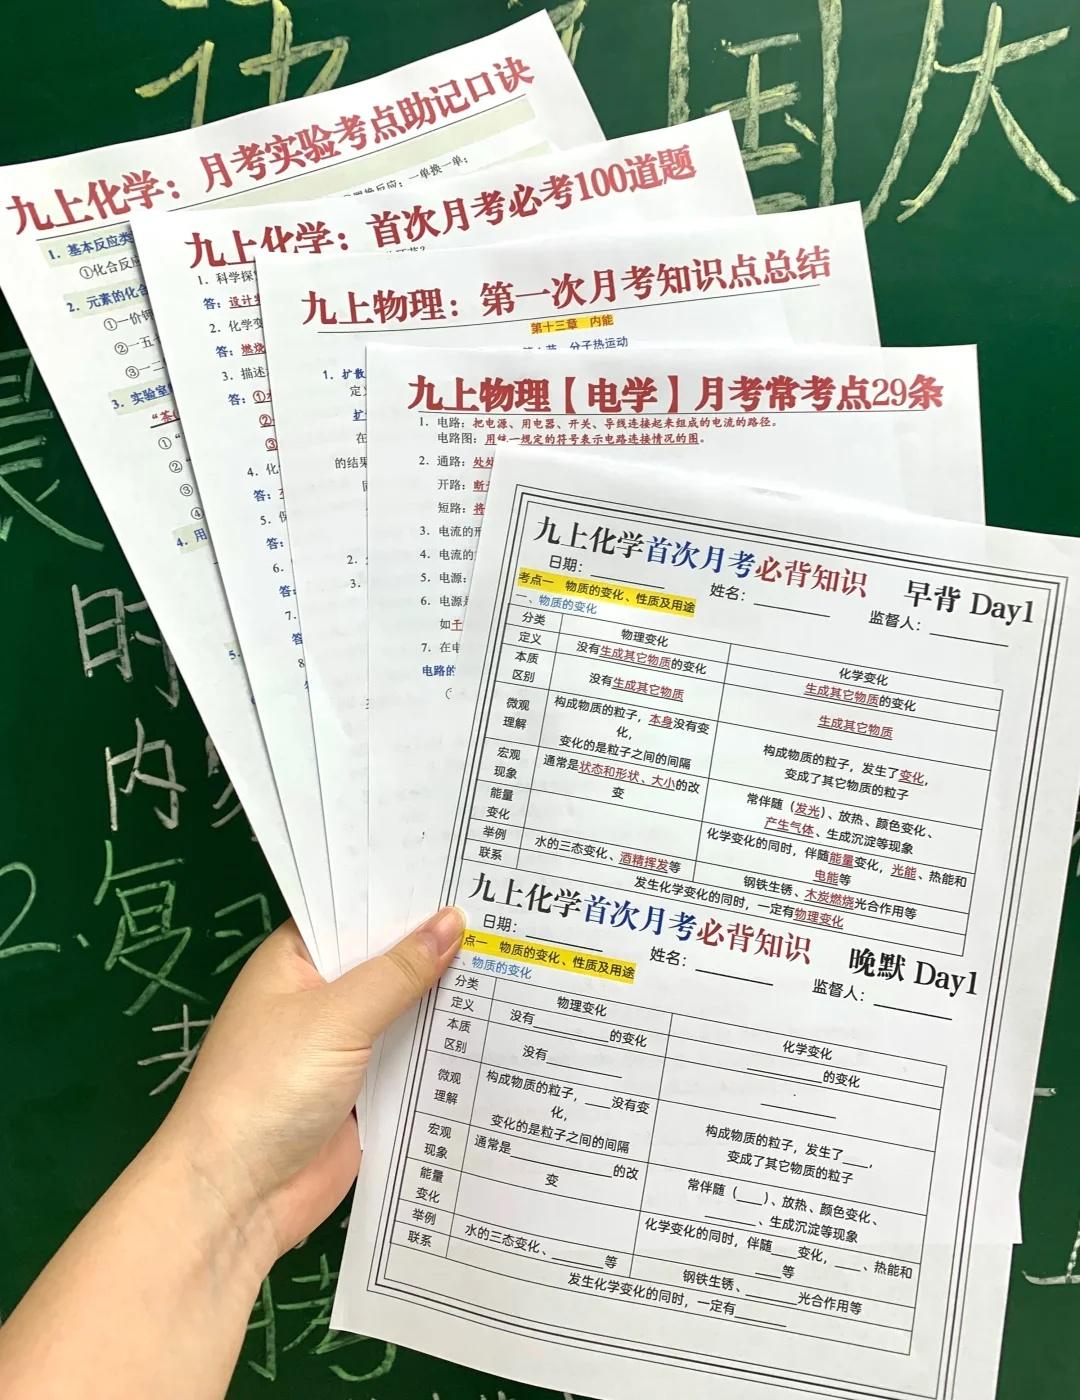 国庆
九上化学：月考实验考点助记口诀
一单换一单；
1. 基本反应类
①化合反应
2. 元素的化合
①一价钾
②一五
③一二
3. 实验室
①“
②“
③
④
4. 用
5.
九上化学：首次月考必考100道题
1. 科学探
答：设计
2. 化学变
答：燃烧
3. 描述
答：①
②
③
4. 化
答：
5.
答：
6.
答：
7.
答
8
九上物理：第一次月考知识点总结
第十三章 内能
分子热运动
1. 扩散
定
扩
在
的结果
2.
3.
九上物理【电学】月考常考点29条
1. 电路：把电源、用电器、开关、导线连接起来组成的电流的路径。
电路图：用统一规定的符号表示电路连接情况的图。
2. 通路：处处
开路：断
短路：将
3. 电流的形
4. 电流的
5. 电源：
6. 电源是
如干
7. 在电
电路的
九上化学首次月考必背知识 早背 Day1
日期：________ 姓名：________ 监督人：________
考点一 物质的变化、性质及用途
一、物质的变化
分类 物理变化 化学变化
定义 没有生成其它物质的变化 生成其它物质的变化
本质区别 没有生成其它物质 生成其它物质
微观理解 构成物质的粒子，本身没有变化，变化的是粒子之间的间隔 构成物质的粒子，发生了变化，变成了其它物质的粒子
宏观现象 通常是状态和形状、大小的改变 常伴随（发光）、放热、颜色变化、产生气体、生成沉淀等现象
能量变化 化学变化的同时，伴随能量变化，光能、热能和电能等
举例 水的三态变化、酒精挥发等 钢铁生锈、木炭燃烧光合作用等
联系 发生化学变化的同时，一定有物理变化
九上化学首次月考必背知识 晚默 Day1
日期：________ 姓名：________ 监督人：________
点一 物质的变化、性质及用途
、物质的变化
分类 物理变化 化学变化
定义 没有________的变化 ________的变化
本质区别 没有________ ________
微观理解 构成物质的粒子，____没有变化，变化的是粒子之间的间隔 构成物质的粒子，发生了____，变成了其它物质的粒子
宏观现象 通常是________的改变 常伴随（____）、放热、颜色变化、________、生成沉淀等现象
能量变化 化学变化的同时，伴随____变化，____、热能和____等
举例 水的三态变化、________等 钢铁生锈、________光合作用等
联系 发生化学变化的同时，一定有________
时
内
2.复习
考